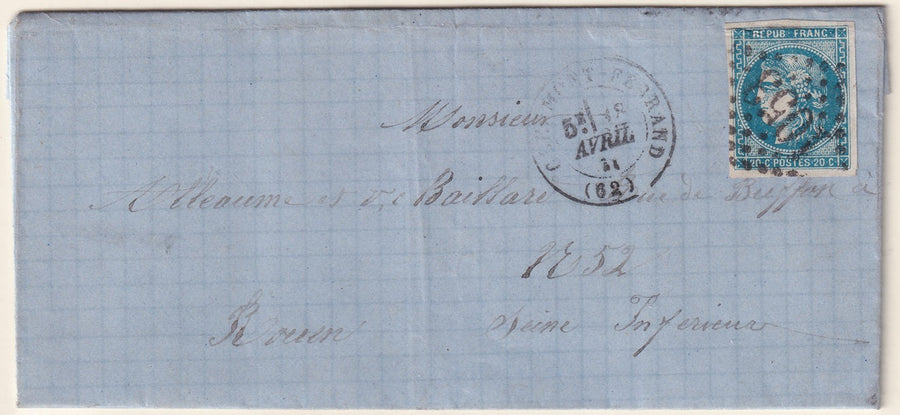 REPUB FRANC
20·C·POSTES·20·C
CLERMONT-FERRAND
5E 18
AVRIL
71
(62)
Monsieur
Alleaume et Baillard rue de Buffon à
N 52
Rouen Seine Inferieur